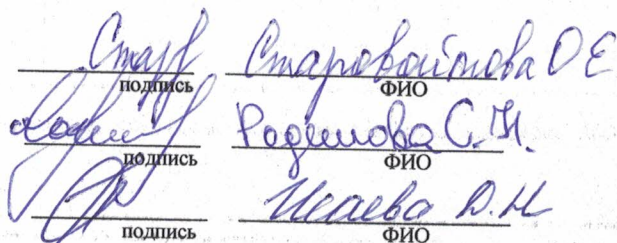 Старовойтова О Е
подпись ФИО
С.Н.
подпись ФИО
Исаева Д.Н
подпись ФИО